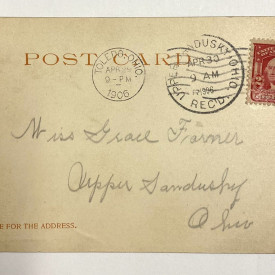 POST CARD
TOLEDO, OHIO.
APR 29
9 - PM
1906
UPPER SANDUSKY, OHIO.
APR 30
9 AM
1906
REC'D.
Miss Grace Farner
Upper Sandusky
Ohio
E FOR THE ADDRESS.